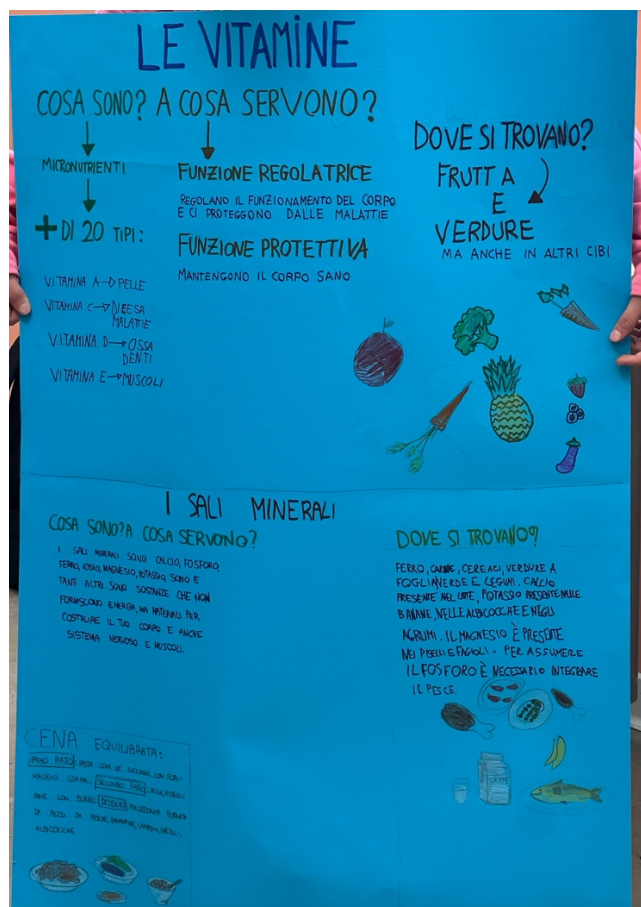 LE VITAMINE
COSA SONO? A COSA SERVONO?
MICRONUTRIENTI
+ DI 20 TIPI:
VITAMINA A → PELLE
VITAMINA C → DIFESA
MALATTIE
VITAMINA D → OSSA
DENTI
VITAMINA E → MUSCOLI
FUNZIONE REGOLATRICE
REGOLANO IL FUNZIONAMENTO DEL CORPO
E CI PROTEGGONO DALLE MALATTIE
FUNZIONE PROTETTIVA
MANTENGONO IL CORPO SANO
DOVE SI TROVANO?
FRUTTA
E
VERDURE
MA ANCHE IN ALTRI CIBI
I SALI MINERALI
COSA SONO? A COSA SERVONO?
I SALI MINERALI SONO CALCIO, FOSFORO,
FERRO, IODIO, MAGNESIO, POTASSIO, SODIO E
TANTI ALTRI. SONO SOSTANZE CHE NON
FORNISCONO ENERGIA, MA MATERIALI PER
COSTRUIRE IL TUO CORPO E ANCHE
SISTEMA NERVOSO E MUSCOLI.
DOVE SI TROVANO?
FERRO, CARNE, CEREALI, VERDURE A
FOGLIA VERDE E LEGUMI. CALCIO
PRESENTE NEL LATTE, POTASSIO PRESENTE NELLE
BANANE, NELLE ALBICOCCHE E NEGLI
AGRUMI. IL MAGNESIO È PRESENTE
NEI PISELLI E FAGIOLI. PER ASSUMERE
IL FOSFORO È NECESSARIO INTEGRARE
IL PESCE.
LATTE
CENA EQUILIBRATA:
PRIMO PIATTO: CON LE ZUCCHINE CON FOR-
MAGGIO GRANA. SECONDO PIATTO:
CON BURRO DESSERT: MACEDONIA FORMATA
DA PEZZI DI BANANA,
ALBICOCCHE